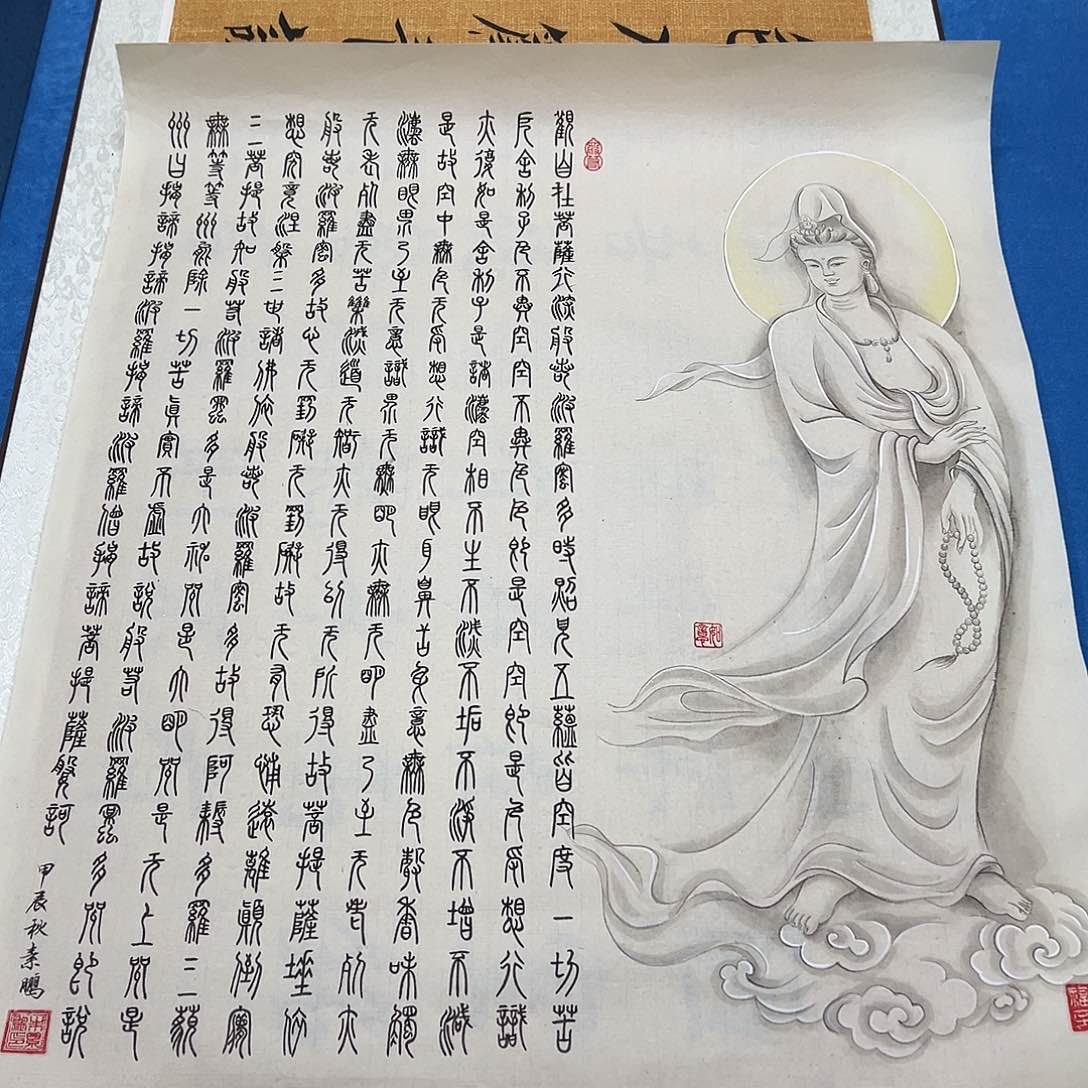 觀自在菩薩行深般若波羅蜜多時照見五蘊皆空度一切苦
厄舍利子色不異空空不異色色即是空空即是色受想行識
亦復如是舍利子是諸法空相不生不滅不垢不淨不增不減
是故空中無色无受想行識无眼耳鼻舌身意無色聲香味觸
法無眼界乃至无意識界无無明亦無无明盡乃至无老死亦
无老死盡无苦集滅道无智亦无得以无所得故菩提薩埵依
般若波羅蜜多故心无罣礙无罣礙故无有恐怖遠離顛倒夢
想究竟涅槃三世諸佛依般若波羅蜜多故得阿耨多羅三藐
三菩提故知般若波羅蜜多是大神咒是大明咒是无上咒是
無等等咒能除一切苦真實不虛故說般若波羅蜜多咒即說
咒曰揭諦揭諦波羅揭諦波羅僧揭諦菩提薩婆訶
甲辰秋素鵬
如意